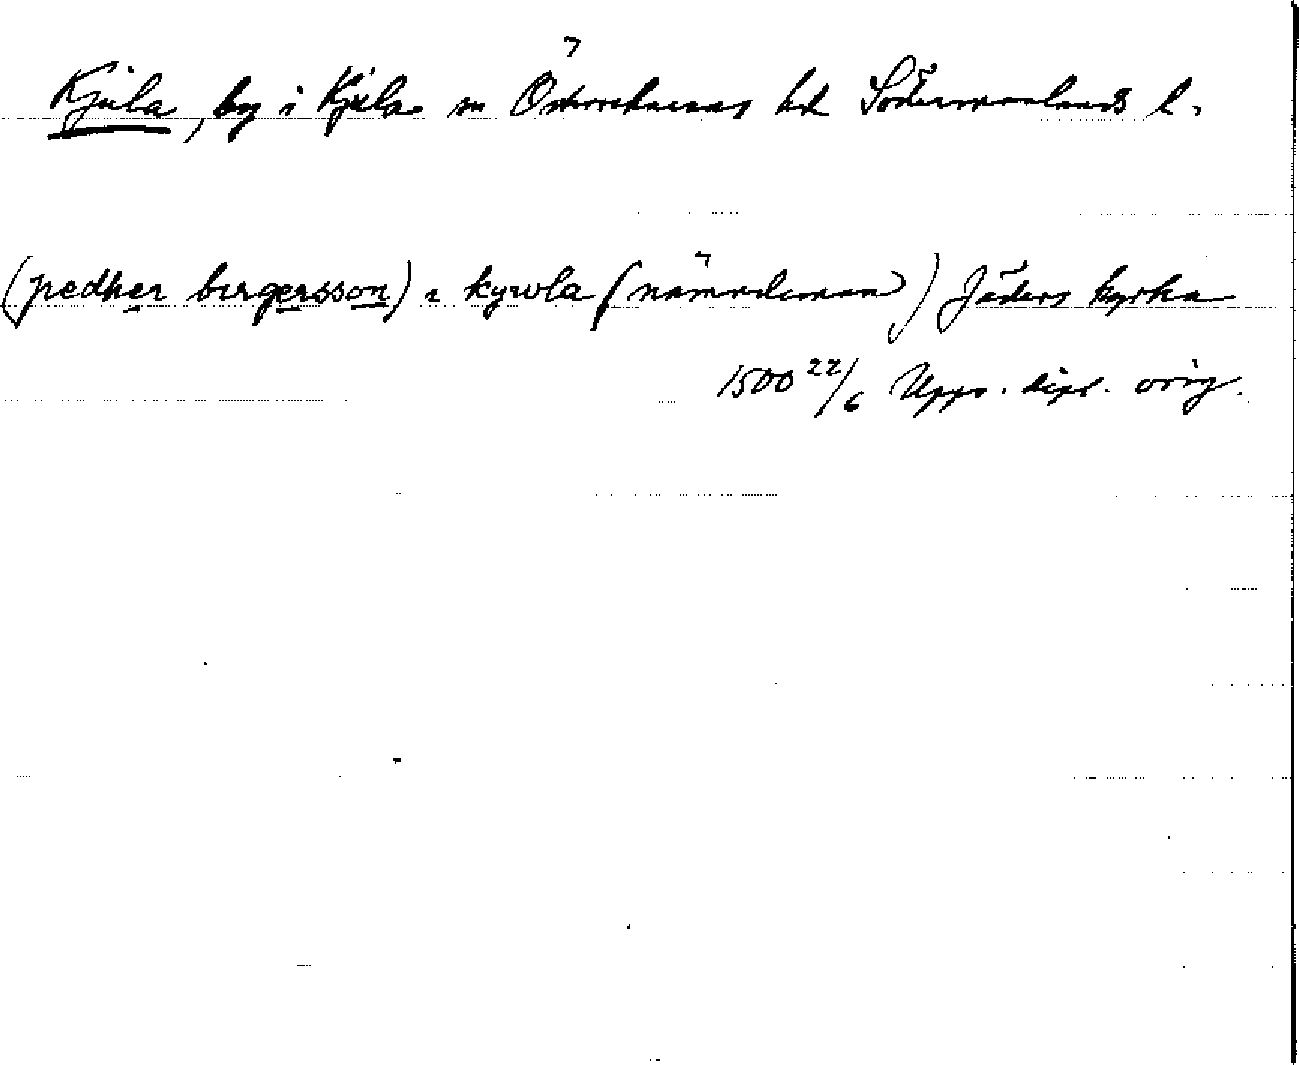 Kjula, by i Kjula sn Österrekarnes hd Södermanlands l.
(pedher birgersson) i kywla (nämndeman) Jäders kyrka
1500 22/6 Upps. dipl. orig.